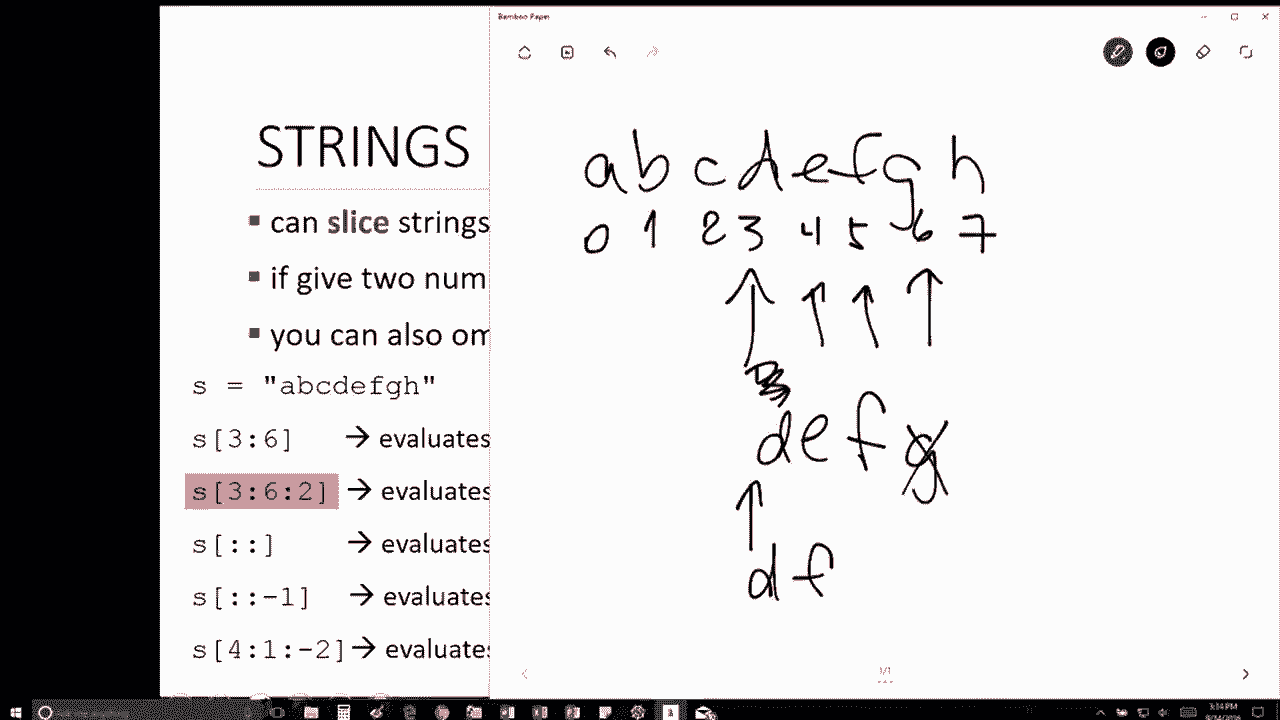 Bamboo Paper
STRINGS
can slice strings
if give two num
you can also om
s = "abcdefgh"
s[3:6] → evaluates
s[3:6:2] → evaluates
s[::] → evaluates
s[::-1] → evaluates
s[4:1:-2] → evaluates
a b c d e f g h
0 1 2 3 4 5 6 7
d e f g
d f
1/1